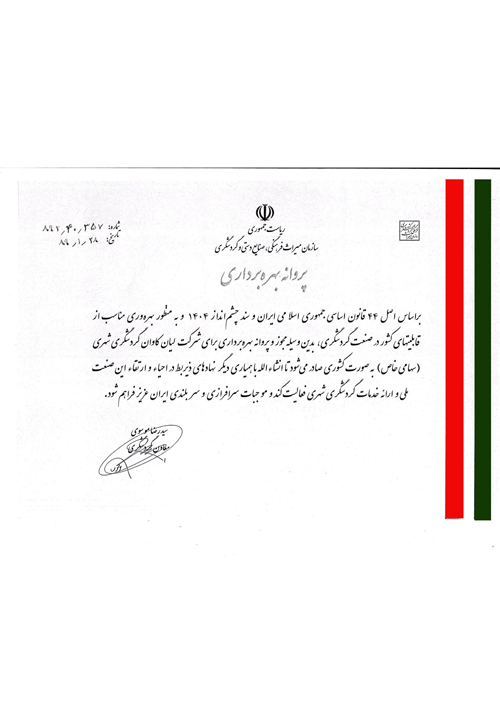 ریاست جمهوری
سازمان میراث فرهنگی، صنایع دستی و گردشگری
شماره: ۸۸۲/۴۰/۳۵۷
تاریخ: ۸۸/۱/۲۸
پروانه بهره برداری
براساس اصل ۴۴ قانون اساسی جمهوری اسلامی ایران و سند چشم انداز ۱۴۰۴ و به منظور بهره‌وری مناسب از
قابلیتهای کشور در صنعت گردشگری، بدین وسیله مجوز و پروانه بهره‌برداری برای شرکت لیان کاوان گردشگری شهری
(سهامی خاص) به صورت کشوری صادر می‌شود تا انشاء الله با همیاری دیگر نهادهای ذیربط در احیاء و ارتقاء این صنعت
ملی و ارائه خدمات گردشگری شهری فعالیت کند و موجبات سرافرازی و سربلندی ایران عزیز فراهم شود.
سید رضا موسوی
معاون گردشگری